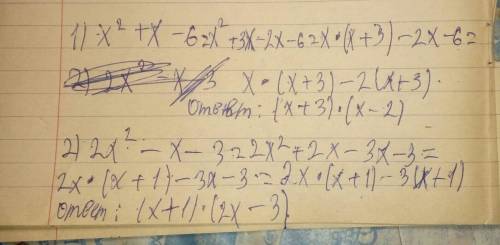 1) x² + x - 6 = x² + 3x - 2x - 6 = x • (x + 3) - 2x - 6 =
x • (x + 3) - 2(x + 3).
Ответ: (x + 3) • (x - 2)
2) 2x² - x - 3 = 2x² + 2x - 3x - 3 =
2x • (x + 1) - 3x - 3 = 2x • (x + 1) - 3(x + 1)
Ответ: (x + 1) • (2x - 3)